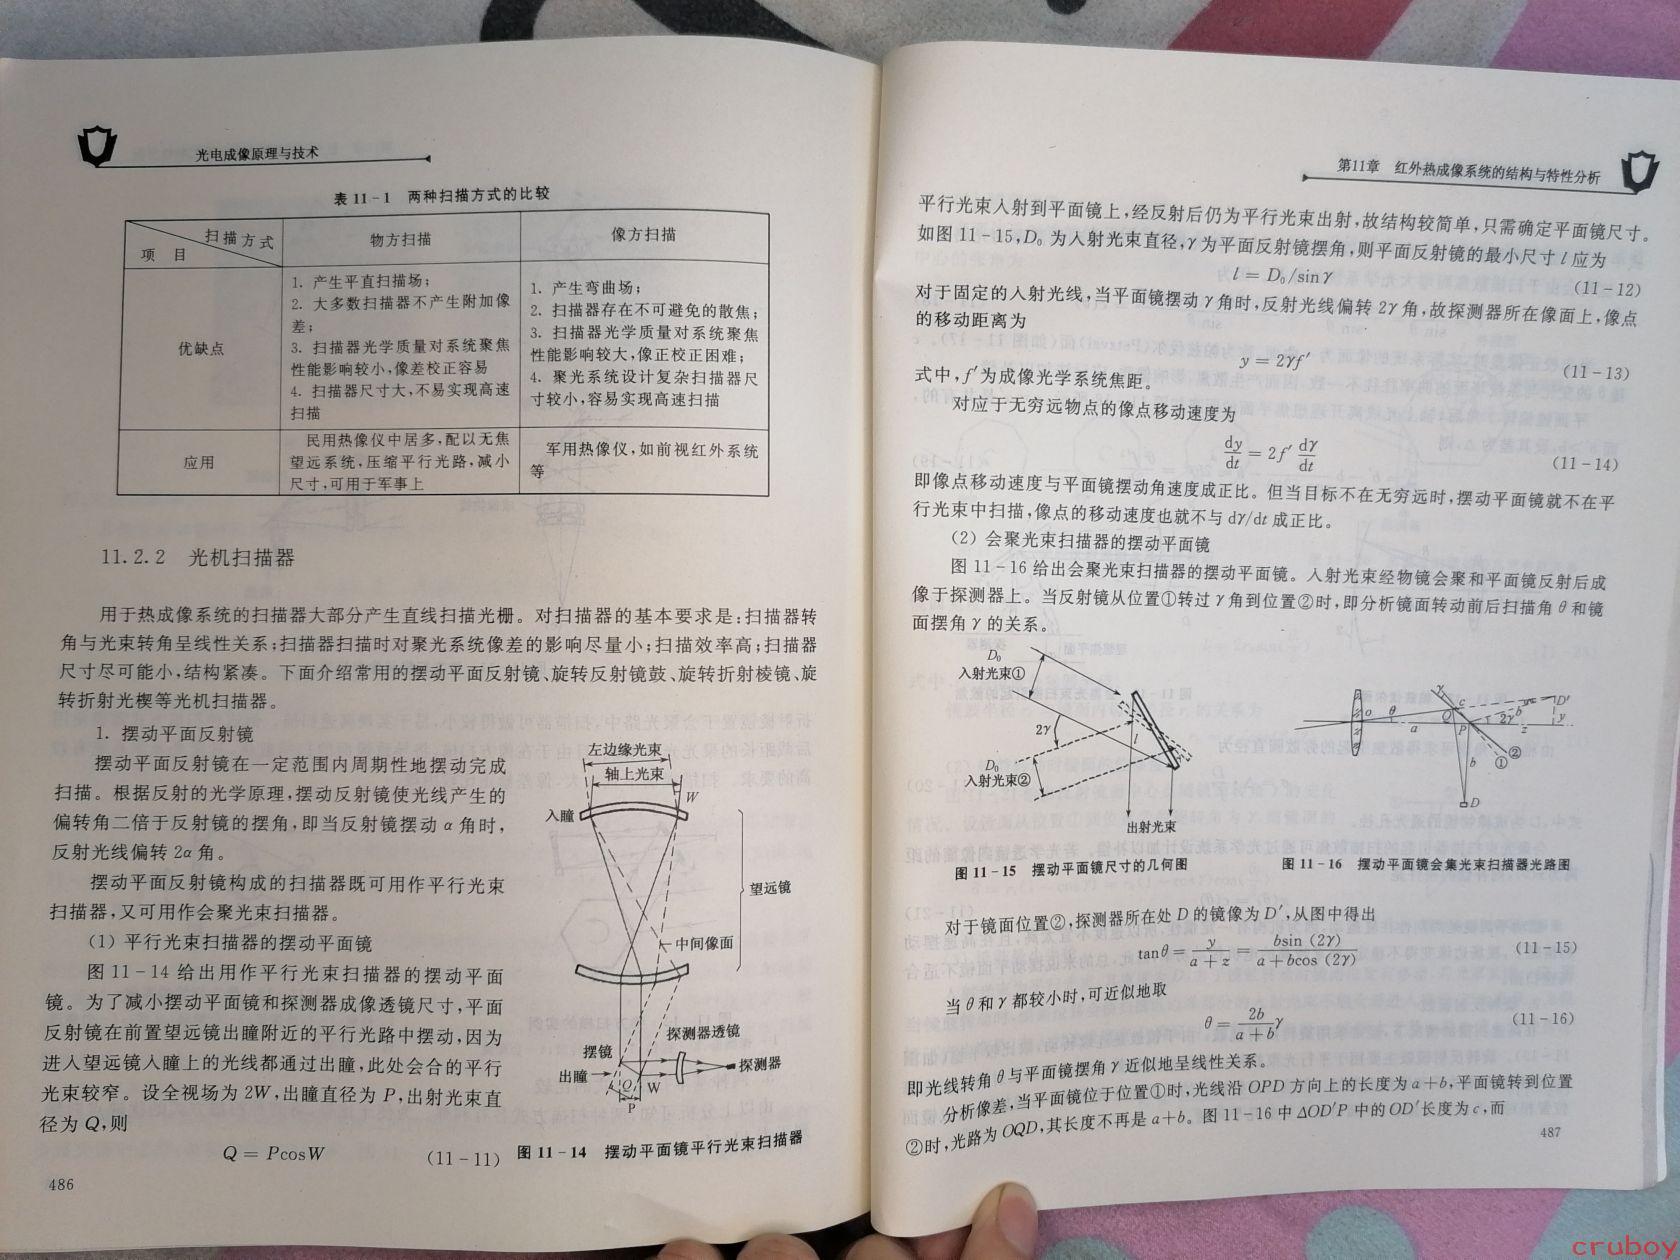 光电成像原理与技术
表 11-1 两种扫描方式的比较
扫描方式
项 目
物方扫描
像方扫描
优缺点
1. 产生平直扫描场；
2. 大多数扫描器不产生附加像
差；
3. 扫描器光学质量对系统聚焦
性能影响较小，像差校正容易
4. 扫描器尺寸大，不易实现高速
扫描
1. 产生弯曲场；
2. 扫描器存在不可避免的散焦；
3. 扫描器光学质量对系统聚焦
性能影响较大，像正校正困难；
4. 聚光系统设计复杂扫描器尺
寸较小，容易实现高速扫描
应用
民用热像仪中居多，配以无焦
望远系统，压缩平行光路，减小
尺寸，可用于军事上
军用热像仪，如前视红外系统
等
11.2.2 光机扫描器
用于热成像系统的扫描器大部分产生直线扫描光栅。对扫描器的基本要求是：扫描器转
角与光束转角呈线性关系；扫描器扫描时对聚光系统像差的影响尽量小；扫描效率高；扫描器
尺寸尽可能小，结构紧凑。下面介绍常用的摆动平面反射镜、旋转反射镜鼓、旋转折射棱镜、旋
转折射光楔等光机扫描器。
1. 摆动平面反射镜
摆动平面反射镜在一定范围内周期性地摆动完成
扫描。根据反射的光学原理，摆动反射镜使光线产生的
偏转角二倍于反射镜的摆角，即当反射镜摆动 α 角时，
反射光线偏转 2α 角。
摆动平面反射镜构成的扫描器既可用作平行光束
扫描器，又可用作会聚光束扫描器。
(1) 平行光束扫描器的摆动平面镜
图 11-14 给出用作平行光束扫描器的摆动平面
镜。为了减小摆动平面镜和探测器成像透镜尺寸，平面
反射镜在前置望远镜出瞳附近的平行光路中摆动，因为
进入望远镜入瞳上的光线都通过出瞳，此处会合的平行
光束较窄。设全视场为 2W，出瞳直径为 P，出射光束直
径为 Q，则
Q = PcosW (11-11)
左边缘光束
轴上光束
W
入瞳
望远镜
中间像面
探测器透镜
摆镜
探测器
出瞳
Q W
P
图 11-14 摆动平面镜平行光束扫描器
486
第11章 红外热成像系统的结构与特性分析
平行光束入射到平面镜上，经反射后仍为平行光束出射，故结构较简单，只需确定平面镜尺寸。
如图 11-15，D₀ 为入射光束直径，γ 为平面反射镜摆角，则平面反射镜的最小尺寸 l 应为
l = D₀/sinγ (11-12)
对于固定的入射光线，当平面镜摆动 γ 角时，反射光线偏转 2γ 角，故探测器所在像面上，像点
的移动距离为
y = 2γf′ (11-13)
式中，f′为成像光学系统焦距。
对应于无穷远物点的像点移动速度为
dy/dt = 2f′ dγ/dt (11-14)
即像点移动速度与平面镜摆动角速度成正比。但当目标不在无穷远时，摆动平面镜就不在平
行光束中扫描，像点的移动速度也就不与 dγ/dt 成正比。
(2) 会聚光束扫描器的摆动平面镜
图 11-16 给出会聚光束扫描器的摆动平面镜。入射光束经物镜会聚和平面镜反射后成
像于探测器上。当反射镜从位置①转过 γ 角到位置②时，即分析镜面转动前后扫描角 θ 和镜
面摆角 γ 的关系。
D₀
入射光束①
2γ
l
D₀
入射光束②
出射光束
图 11-15 摆动平面镜尺寸的几何图
γ
c
D′
o θ
Q
b
2γ
y
a
P
z
②
①
b
D
图 11-16 摆动平面镜会集光束扫描器光路图
对于镜面位置②，探测器所在处 D 的镜像为 D′，从图中得出
tanθ = y/(a+z) = bsin(2γ)/(a+bcos(2γ)) (11-15)
当 θ 和 γ 都较小时，可近似地取
θ = 2b/(a+b) γ (11-16)
即光线转角 θ 与平面镜摆角 γ 近似地呈线性关系。
分析像差，当平面镜位于位置①时，光线沿 OPD 方向上的长度为 a+b，平面镜转到位置
②时，光路为 OQD，其长度不再是 a+b。图 11-16 中 ΔOD′P 中的 OD′长度为 c，而
487
cruboy